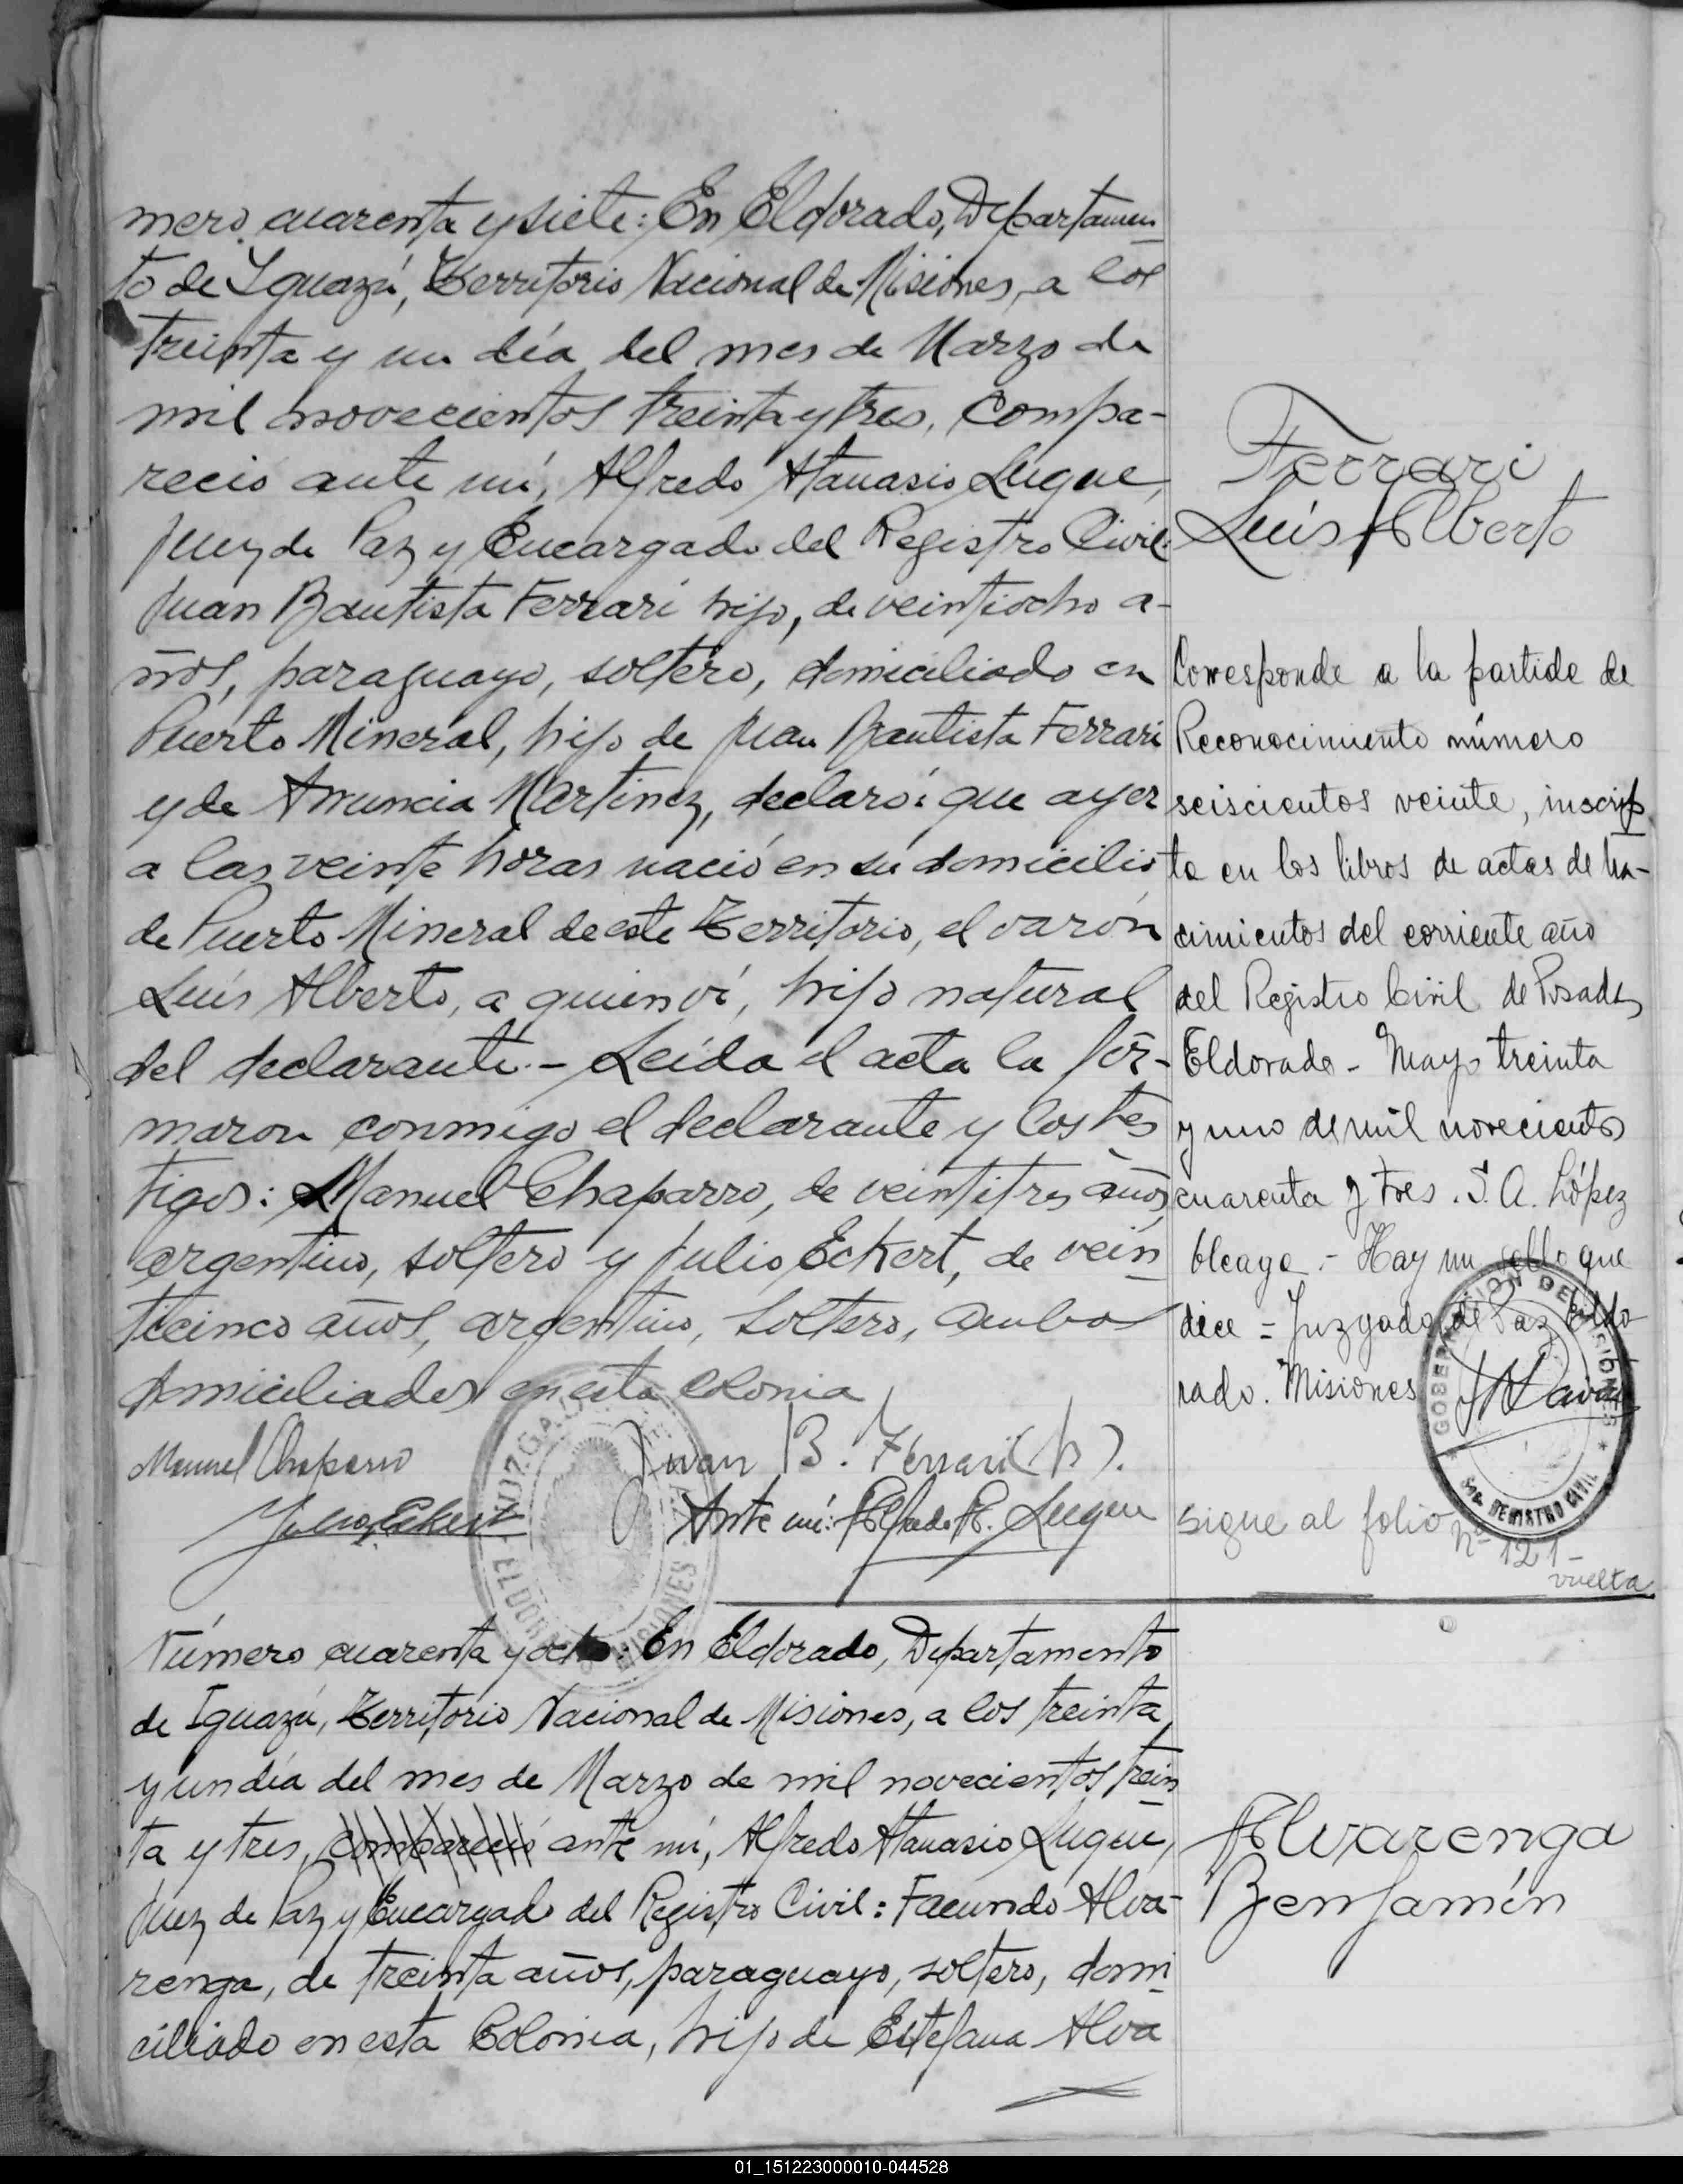 mero cuarenta y siete: En Eldorado, Departamen
to de Iguazú, Territorio Nacional de Misiones, a los
treinta y un día del mes de Marzo de
mil novecientos treinta y tres, compa-
reció ante mí, Alfredo Atanasio Luque,
Juez de Paz y Encargado del Registro Civil:
Juan Bautista Ferrari hijo, de veintiocho a-
ños, paraguayo, soltero, domiciliado en
Puerto Mineral, hijo de Juan Bautista Ferrari
y de Anuncia Martinez, declaró: que ayer
a las veinte horas nació en su domicilio
de Puerto Mineral de este Territorio, el varón
Luís Alberto, a quien ví, hijo natural
del declarante.- Leída el acta la for-
maron conmigo el declarante y los tes
tigos: Manuel Chaparro, de veintitres años,
argentino, soltero y Julio Eckert, de vein
ticinco años, argentino, soltero, ambos
domiciliados en esta colonia
Manuel Chaparro
Juan B. Ferrari (h).
Julio Eckert
Ante mí: Alfredo A. Luque
Ferrari
Luís Alberto
Corresponde a la partida de
Reconocimiento número
seiscientos veinte, inscrip
ta en los libros de actas de na-
cimientos del corriente año
del Registro Civil de Posadas
Eldorado - Mayo treinta
y uno de mil novecientos
cuarenta y tres. S. A. López
Hay un sello que
dice = Juzgado de Paz Eldo
rado. Misiones
GOBERNACION DE MISIONES
REGISTRO CIVIL
sigue al folio
Nº 121-
vuelta
JUZGADO
ELDORADO MISIONES
Número cuarenta y ocho: En Eldorado, Departamento
de Iguazú, Territorio Nacional de Misiones, a los treinta
y un día del mes de Marzo de mil novecientos trein
ta y tres, compareció ante mí, Alfredo Atanasio Luque,
Juez de Paz y Encargado del Registro Civil: Facundo Alva-
renga, de treinta años, paraguayo, soltero, domi
ciliado en esta Colonia, hijo de Estefana Alva
Alvarenga
Benjamín
01_151223000010-044528